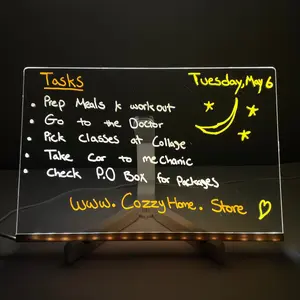 Tasks
Tuesday, May 6
• Prep Meals & workout
• Go to the Doctor
• Pick classes at Collage
• Take car to mechanic
• Check P.O Box for Packages
www.CozzyHome.Store